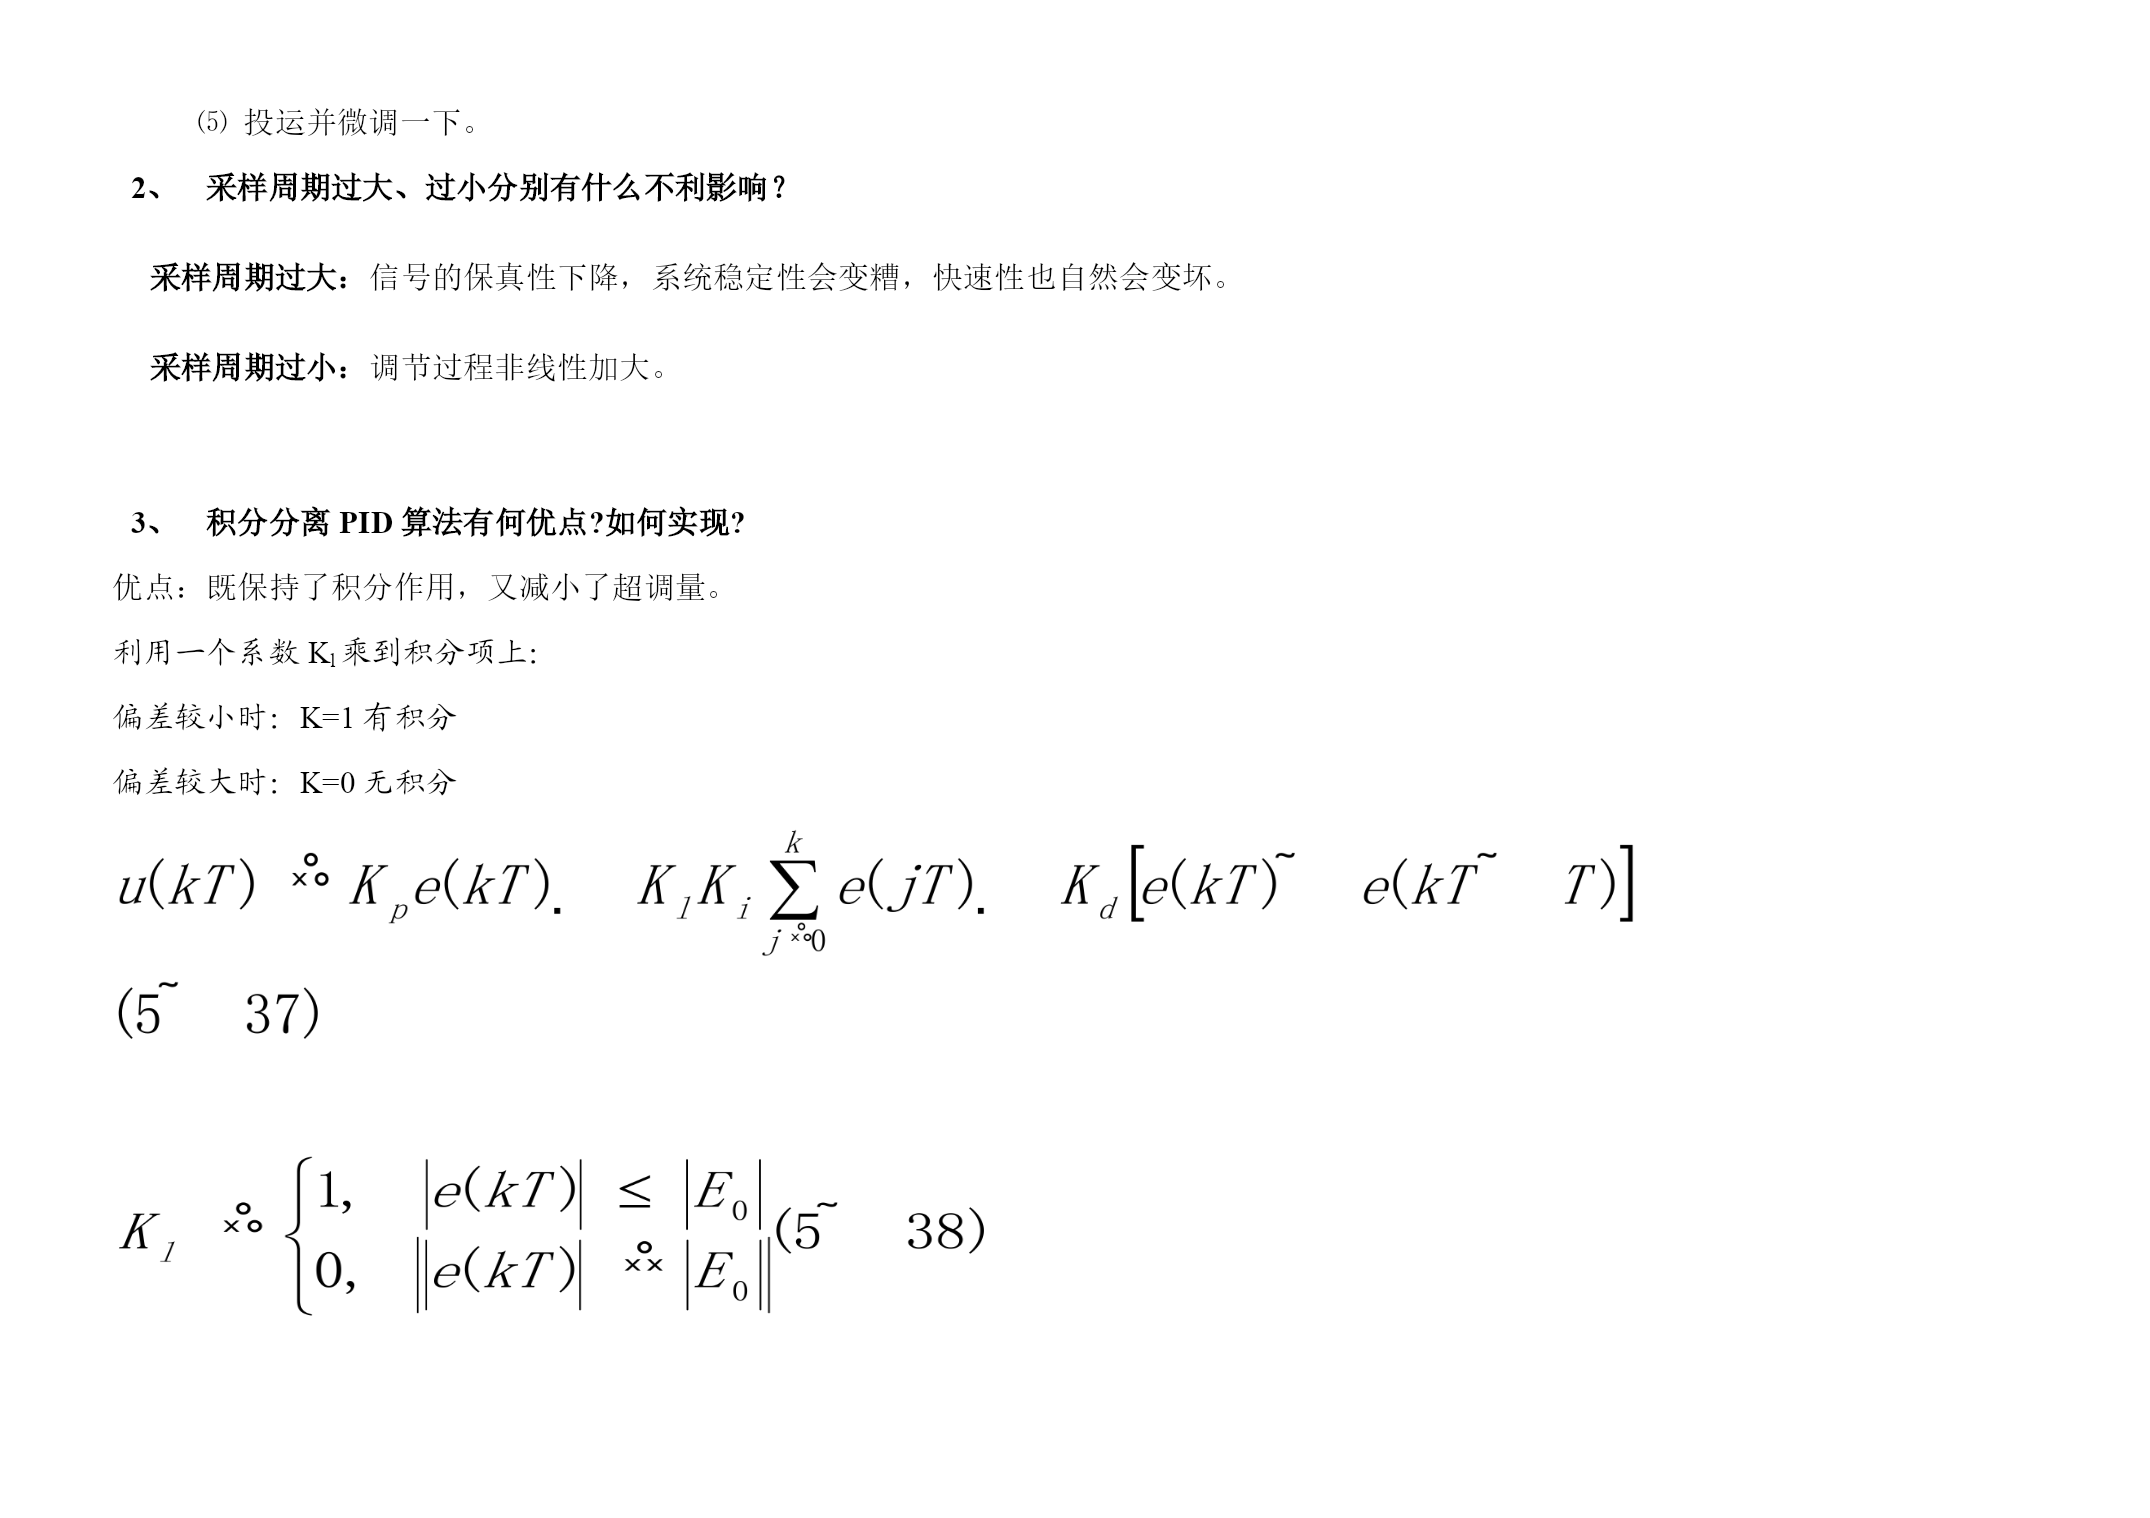 ⑸ 投运并微调一下。
2、 采样周期过大、过小分别有什么不利影响？
采样周期过大：信号的保真性下降，系统稳定性会变糟，快速性也自然会变坏。
采样周期过小：调节过程非线性加大。
3、 积分分离 PID 算法有何优点?如何实现?
优点：既保持了积分作用，又减小了超调量。
利用一个系数 Kl 乘到积分项上：
偏差较小时：K=1 有积分
偏差较大时：K=0 无积分
u(kT) ஃ K_p e(kT). K_l K_i ∑_{j ஃ 0}^{k} e(jT). K_d [e(kT)~ e(kT~ T)]
(5~ 37)
K_l ஃ { 1, |e(kT)| ≤ |E_0| (5~ 38)
0, ||e(kT)| ஃ |E_0||